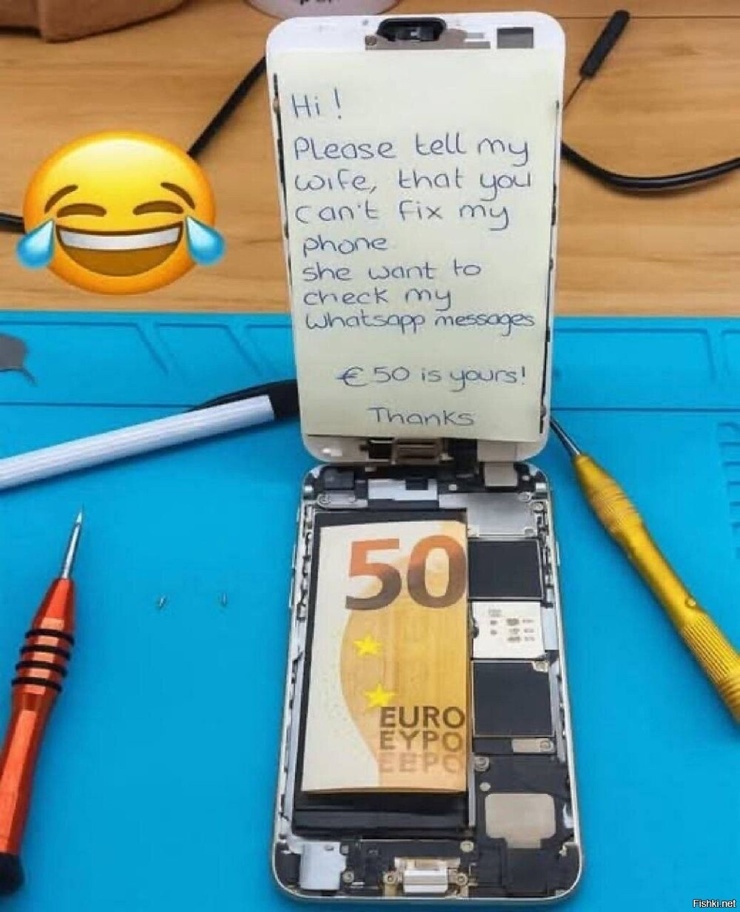 Hi!
Please tell my
wife, that you
can't fix my
phone
she want to
check my
Whatsapp messages
€50 is yours!
Thanks
50
EURO
EYPO
EBPO
Fishki.net